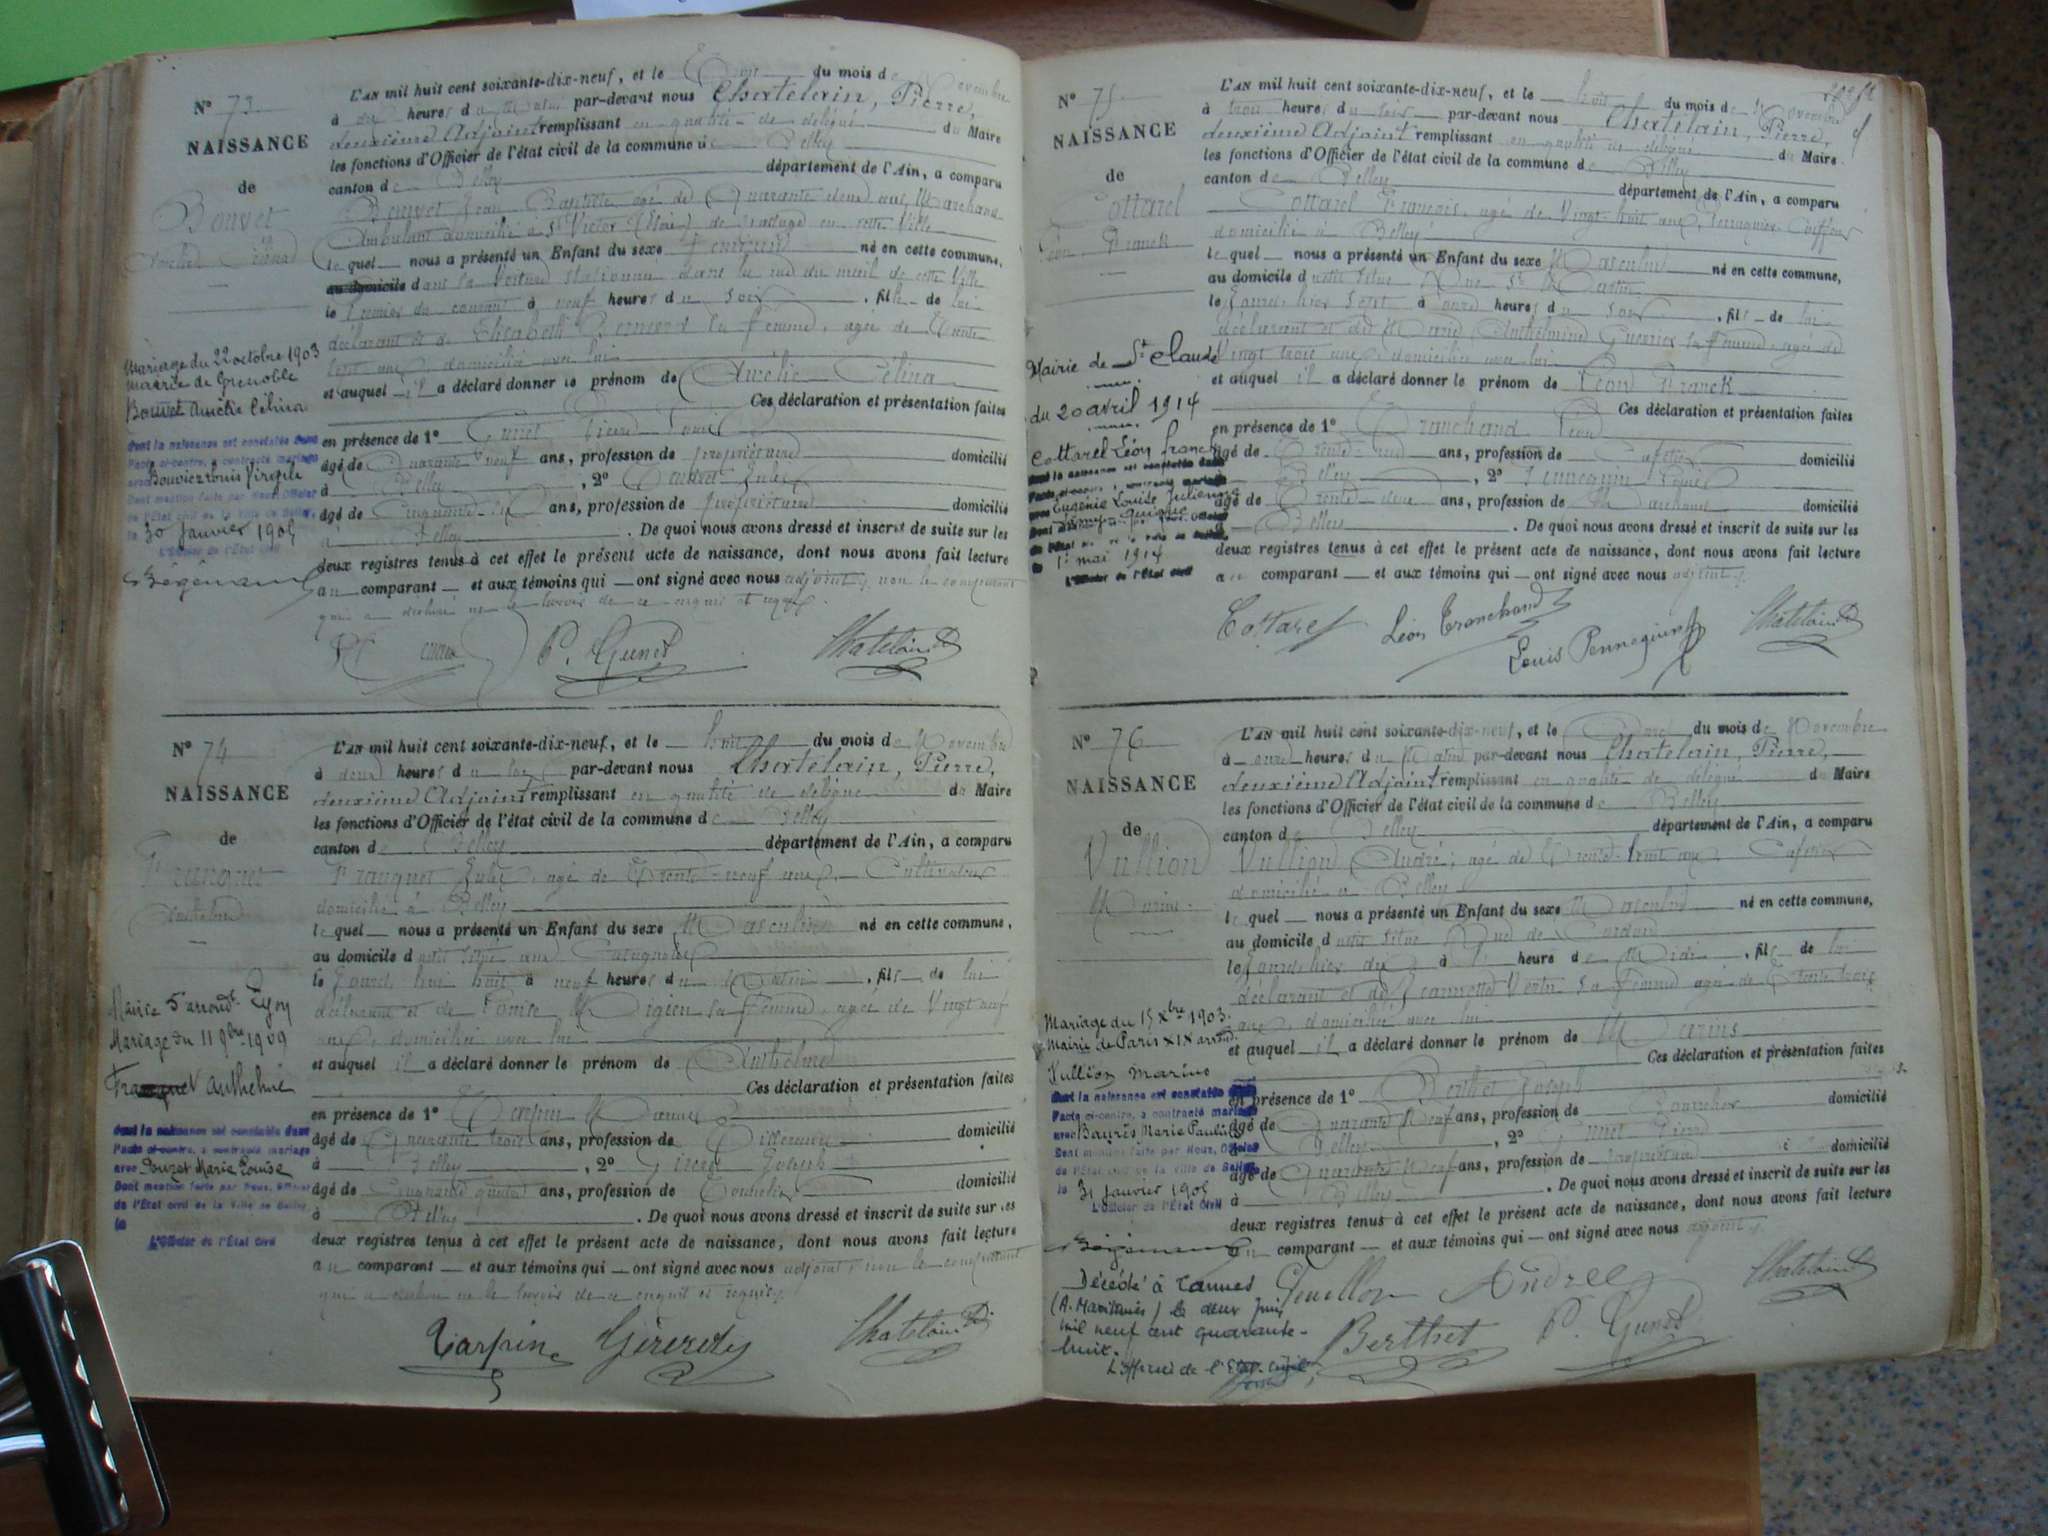 N° 73
NAISSANCE
de
Bouvet
Amélie Célina
L'AN mil huit cent soixante-dix-neuf, et le du mois de Novembre
à heures du matin par-devant nous Chatelain, Pierre,
deuxième Adjoint remplissant en qualité de délégué du Maire
les fonctions d'Officier de l'état civil de la commune de Belley
canton de Belley département de l'Ain, a comparu
Bouvet Jean Baptiste, âgé de Quarante deux ans, Marchand
Ambulant domicilié à St Victor de passage en cette Ville
lequel nous a présenté un Enfant du sexe Féminin né en cette commune,
au domicile dans la Voiture stationnée dans la rue du mail de cette Ville
le Premier du courant à neuf heures du soir, fille de lui
déclarant et de Elisabeth sa femme, âgée de Trente
sept ans, domiciliée avec lui
et auquel il a déclaré donner le prénom de Amélie Célina
Ces déclaration et présentation faites
en présence de 1° Gunet Pierre Louis
âgé de Quarante neuf ans, profession de propriétaire domicilié
à Belley, 2°
âgé de Cinquante six ans, profession de propriétaire domicilié
à Belley. De quoi nous avons dressé et inscrit de suite sur les
deux registres tenus à cet effet le présent acte de naissance, dont nous avons fait lecture
au comparant et aux témoins qui ont signé avec nous adjoint, non le comparant
qui a déclaré ne le savoir de ce enquis et requis.
P. Gunet Chatelain
Mariage du 22 octobre 1903
mairie de Grenoble
Bouvet Amélie Célina
dont la naissance est constatée dans
l'acte ci-contre, a contracté mariage
avec Bouvier Louis Virgile
Dont mention faite par Nous, Officier
de l'État civil de la Ville de Belley,
le 30 Janvier 1905
L'Officier de l'État Civil
N° 74
NAISSANCE
de
Franquet
Anthelme
L'AN mil huit cent soixante-dix-neuf, et le huit du mois de Novembre
à deux heures du soir par-devant nous Chatelain, Pierre,
deuxième Adjoint remplissant en qualité de délégué du Maire
les fonctions d'Officier de l'état civil de la commune de Belley
canton de Belley département de l'Ain, a comparu
Franquet Jules, âgé de Trente-neuf ans, Cultivateur
domicilié à Belley
lequel nous a présenté un Enfant du sexe Masculin né en cette commune,
au domicile dudit situé aux
le jourd'hui huit à neuf heures du matin, fils de lui
déclarant et de sa femme, âgée de Vingt neuf
ans, domiciliée avec lui
et auquel il a déclaré donner le prénom de Anthelme
Ces déclaration et présentation faites
en présence de 1° Tarpin
âgé de Quarante trois ans, profession de domicilié
à Belley, 2° Girerd Joseph
âgé de Cinquante quatre ans, profession de domicilié
à Belley. De quoi nous avons dressé et inscrit de suite sur les
deux registres tenus à cet effet le présent acte de naissance, dont nous avons fait lecture
au comparant et aux témoins qui ont signé avec nous adjoint, non le comparant
qui a déclaré ne le savoir de ce enquis et requis.
Tarpin Girerd Chatelain
Mairie 5e arrondt Lyon
Mariage du 11 9bre 1909
Franquet Anthelme
dont la naissance est constatée dans
l'acte ci-contre, a contracté mariage
avec Douzet Marie Louise
Dont mention faite par Nous, Officier
de l'État civil de la Ville de Belley,
le
L'Officier de l'État Civil
N° 75
NAISSANCE
de
Cottarel
Léon Franck
L'AN mil huit cent soixante-dix-neuf, et le huit du mois de Novembre
à trois heures du soir par-devant nous Chatelain, Pierre,
deuxième Adjoint remplissant en qualité de délégué du Maire
les fonctions d'Officier de l'état civil de la commune de Belley
canton de Belley département de l'Ain, a comparu
Cottarel François, âgé de Vingt huit ans, Perruquier Coiffeur
domicilié à Belley
lequel nous a présenté un Enfant du sexe Masculin né en cette commune,
au domicile dudit situé Rue St Martin
le jour d'hier sept à onze heures du soir, fils de lui
déclarant et de Marie Anthelmine sa femme, âgée de
Vingt trois ans, domiciliée avec lui
et auquel il a déclaré donner le prénom de Léon Franck
Ces déclaration et présentation faites
en présence de 1° Tranchand Léon
âgé de Trente ans, profession de Cafetier domicilié
à Belley, 2° Pennequin Louis
âgé de Trente deux ans, profession de Marchand domicilié
à Belley. De quoi nous avons dressé et inscrit de suite sur les
deux registres tenus à cet effet le présent acte de naissance, dont nous avons fait lecture
au comparant et aux témoins qui ont signé avec nous adjoint.
Cottarel Léon Tranchand Louis Pennequin Chatelain
Mairie de St Claude
du 20 avril 1914
Cottarel Léon franck
dont la naissance est constatée dans
l'acte ci-contre, a contracté mariage
avec Eugénie Louise Julienne
1er mai 1914
L'Officier de l'État Civil
N° 76
NAISSANCE
de
Vullion
Marius
L'AN mil huit cent soixante-dix-neuf, et le onze du mois de Novembre
à onze heures du Matin par-devant nous Chatelain, Pierre,
deuxième Adjoint remplissant en qualité de délégué du Maire
les fonctions d'Officier de l'état civil de la commune de Belley
canton de Belley département de l'Ain, a comparu
Vullion André, âgé de Trente-huit ans, Cafetier
domicilié à Belley
lequel nous a présenté un Enfant du sexe Masculin né en cette commune,
au domicile dudit situé Rue de
le jour d'hier dix à heure de Midi, fils de lui
déclarant et de Jeannette sa femme âgée de Trente trois
ans, domiciliée avec lui
et auquel il a déclaré donner le prénom de Marius
Ces déclaration et présentation faites
en présence de 1° Berthet Joseph
âgé de Quarante Neuf ans, profession de domicilié
à Belley, 2° Gunet Pierre
âgé de Quarante Neuf ans, profession de propriétaire domicilié
à Belley. De quoi nous avons dressé et inscrit de suite sur les
deux registres tenus à cet effet le présent acte de naissance, dont nous avons fait lecture
au comparant et aux témoins qui ont signé avec nous adjoint.
André Chatelain
Berthet P. Gunet
Mariage du 15 Xbre 1903.
Mairie de Paris XIX arrond.
Vullion Marius
dont la naissance est constatée dans
l'acte ci-contre, a contracté mariage
avec Baurès Marie Pauline
Dont mention faite par Nous, Officier
de l'État civil de la Ville de Belley,
le 31 Janvier 1905
L'Officier de l'État Civil
Décédé à Cannes
(A. Maritimes) le deux Juin
mil neuf cent quarante-
huit.
L'Officier de l'Etat-Civil,